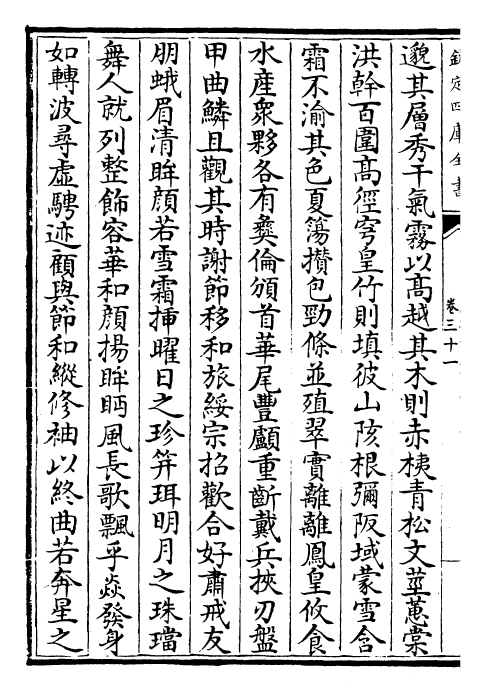 欽定四庫全書
卷三十一
邈其層秀干氣霧以高越其木則赤桋青松文莖蕙棠
洪幹百圍高徑穹皇竹則填彼山陔根彌阪域蒙雪含
霜不渝其色夏簜攢包勁條並殖翠實離離鳳皇攸食
水産衆夥各有彜倫頒首華尾豐顱重齗戴兵挾刃盤
甲曲鱗且觀其時謝節移和旅綏宗招歡合好肅戒友
朋蛾眉清眸顔若雪霜揷曜日之珍笄珥明月之珠璫
舞人就列整飾容華和顔揚眸眄風長歌飄乎焱發身
如轉波尋虚騁迹顧與節和縱修袖以終曲若奔星之